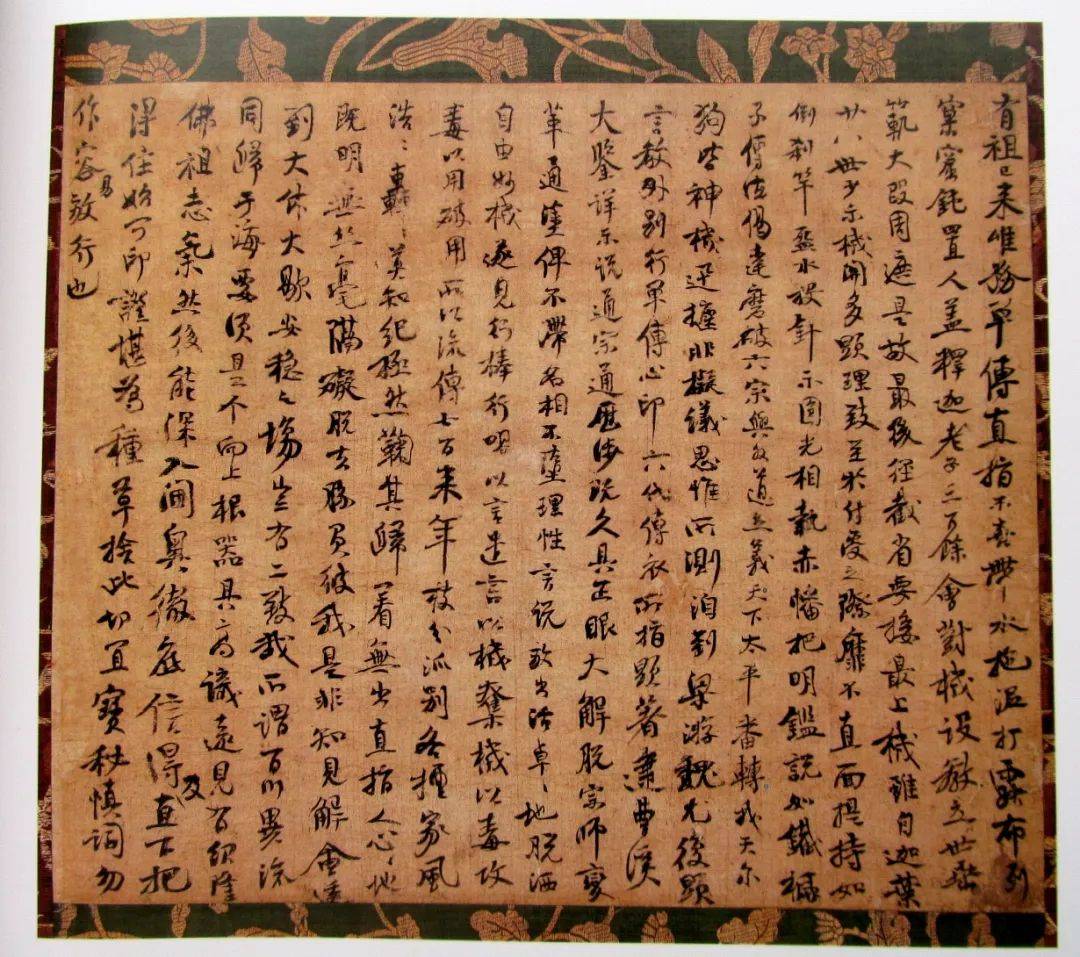 有祖已来唯務單傳直指不喜帶水拖泥打露布列
窠窟鈍置人盖釋迦老子三百餘會對機設教立世垂
範大段周遮是故最後徑截省要接最上機雖自迦葉
廿八世少示機關多顯理致至於付受之際靡不直面提持如
倒刹竿盋水投針示圓光相執赤幡把明鑑說如鐵橛
子傳法偈達磨破六宗與外道立義天下太平番轉我天尔
狗皆神機迅捷非擬議思惟所測洎到梁游魏尤復顯
言教外別行單傳心印六代傳衣所指顯著逮曹溪
大鑒詳示說通宗通歷涉既久具正眼大解脫宗師變
革通塗俾不滯名相不墮理性言說放出活卓〻地脫洒
自由妙機遂見行棒行喝以言遣言以機奪機以毒攻
毒以用破用所以流傳七百来年枝分派別各擅家風
浩〻轟〻莫知紀極然鞫其歸著無出直指人心〻地
既明無絲毫隔礙脫去勝負彼我是非知見解會透
到大休大歇安穩之場豈有二致哉所謂百川異流
同歸于海要須是个向上根器具高識遠見有紹隆
佛祖志氣然後能深入閫奥徹底信得及直下把
得住始可印證堪為種草捨此切宜寶秘慎詞勿
作容易放行也